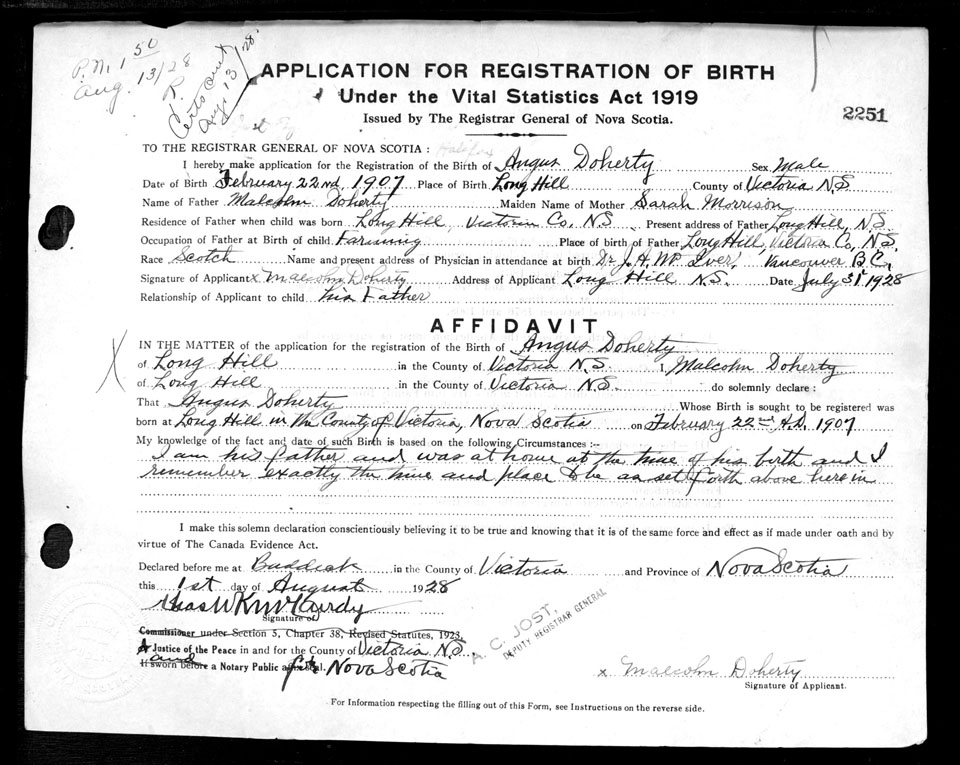 P.N. 1 50
Aug. 13/28
R.
Certs out
Aug 13/28
APPLICATION FOR REGISTRATION OF BIRTH
Under the Vital Statistics Act 1919
Issued by The Registrar General of Nova Scotia.
2251
TO THE REGISTRAR GENERAL OF NOVA SCOTIA: Halifax
I hereby make application for the Registration of the Birth of Angus Doherty Sex Male
Date of Birth February 22nd, 1907 Place of Birth Long Hill County of Victoria N.S
Name of Father Malcolm Doherty Maiden Name of Mother Sarah Morrison
Residence of Father when child was born Long Hill, Victoria Co, N.S Present address of Father Long Hill, N.S.
Occupation of Father at Birth of child Farming Place of Father Long Hill, Victoria Co, N.S.
Race Scotch Name and present address of Physician in attendance at birth Dr. J. H. Mc Iver, Vancouver B.C.
Signature of Applicant x Malcolm Doherty Address of Applicant Long Hill N.S. Date July 31 1928
Relationship of Applicant to child his Father
AFFIDAVIT
IN THE MATTER of the application for the registration of the Birth of Angus Doherty
of Long Hill in the County of Victoria N.S I, Malcolm Doherty
of Long Hill in the County of Victoria N.S. do solemnly declare:
That Angus Doherty Whose Birth is sought to be registered was
born at Long Hill in the County of Victoria, Nova Scotia on February 22nd A.D. 1907
My knowledge of the fact and date of such Birth is based on the following Circumstances :—
I am his father and was at home at the time of his birth and I
remember exactly the time and place to be as set forth above herein
I make this solemn declaration conscientiously believing it to be true and knowing that it is of the same force and effect as if made under oath and by
virtue of The Canada Evidence Act.
Declared before me at Baddeck in the County of Victoria and Province of Nova Scotia
this 1st day of August 1928
Signature of
Commissioner under Section 5, Chapter 38, Revised Statutes, 1923.
A Justice of the Peace in and for the County of Victoria N.S.
and
If sworn before a Notary Public affix seal. for Nova Scotia
A. C. JOST,
DEPUTY REGISTRAR GENERAL
x Malcolm Doherty
Signature of Applicant.
For Information respecting the filling out of this Form, see Instructions on the reverse side.